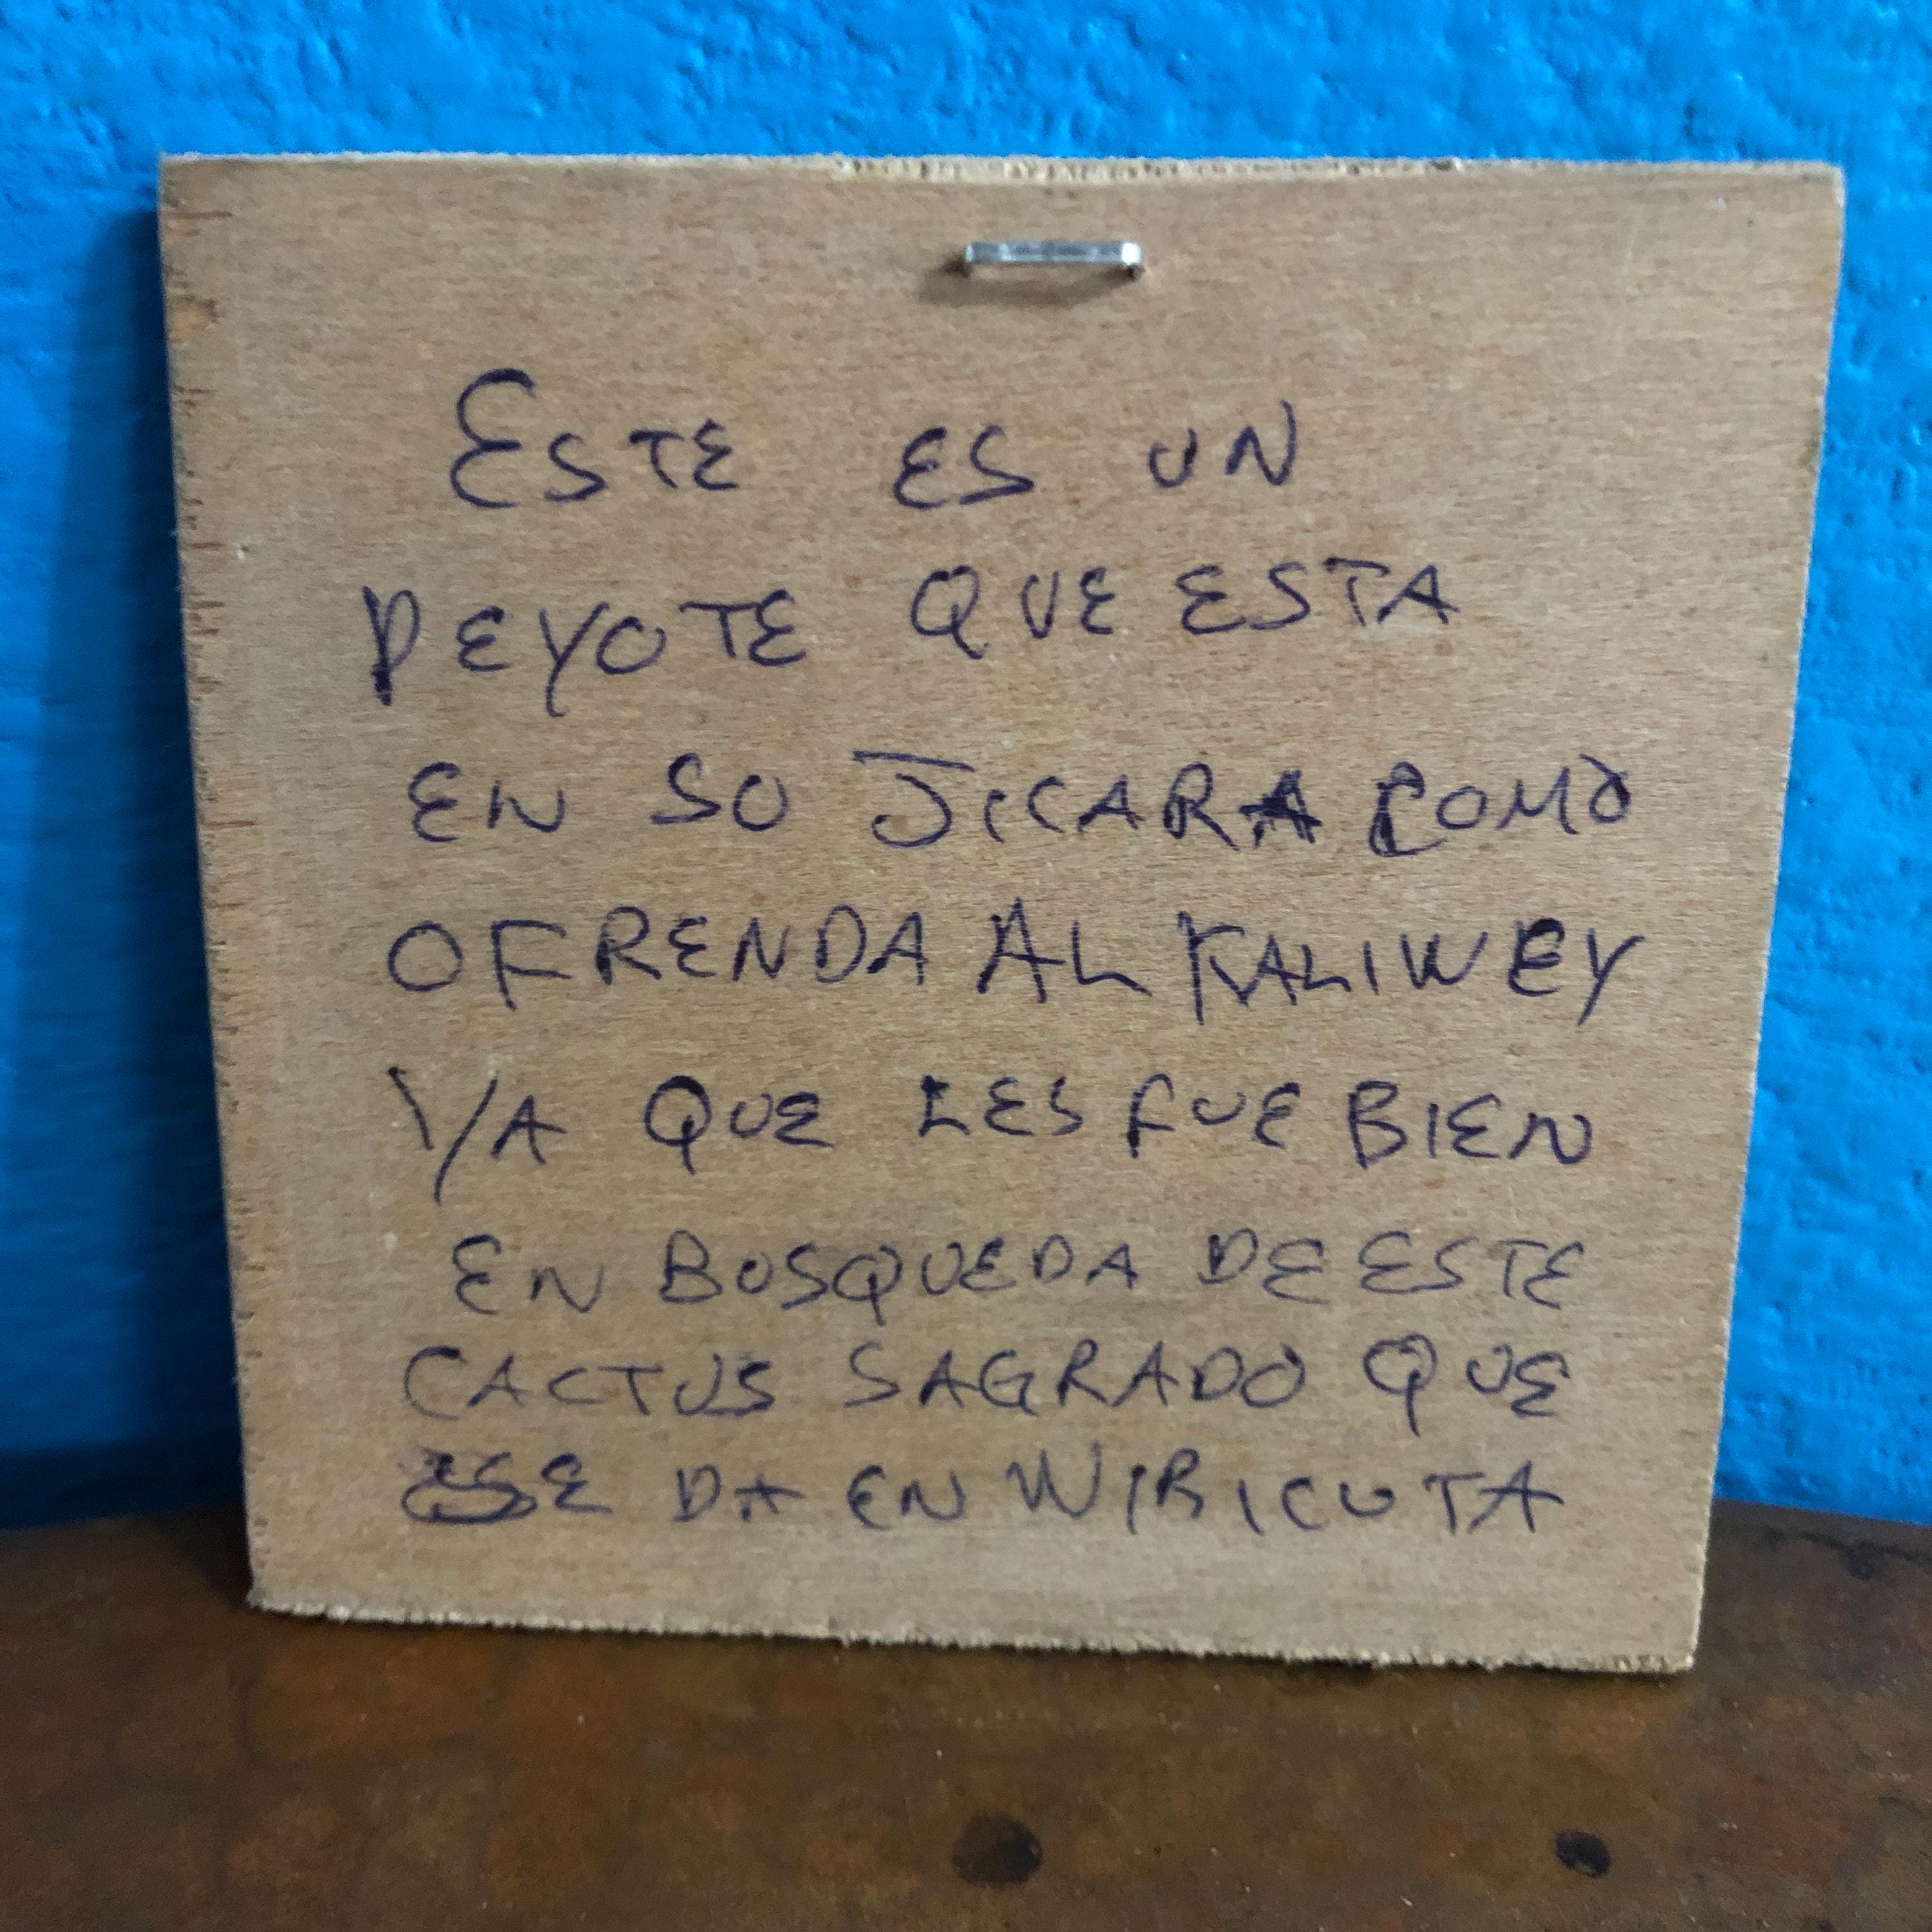 ESTE ES UN
PEYOTE QUE ESTA
EN SU JICARA COMO
OFRENDA AL KALIWEY
YA QUE LES FUE BIEN
EN BUSQUEDA DE ESTE
CACTUS SAGRADO QUE
SE DA EN WIRICUTA